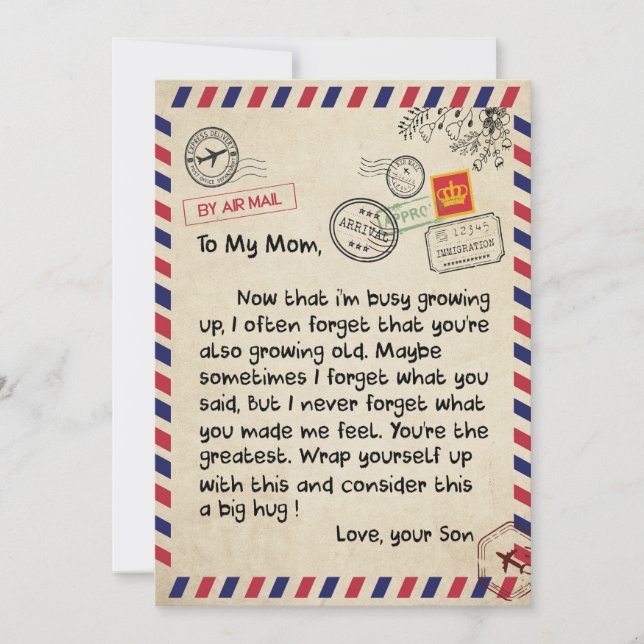 EXPRESS DELIVERY
BY AIR MAIL
AIR MAIL
ARRIVAL
APPRO
12345
IMMIGRATION
To My Mom,
Now that i'm busy growing
up, I often forget that you're
also growing old. Maybe
sometimes I forget what you
said, But I never forget what
you made me feel. You're the
greatest. Wrap yourself up
with this and consider this
a big hug !
Love, your Son